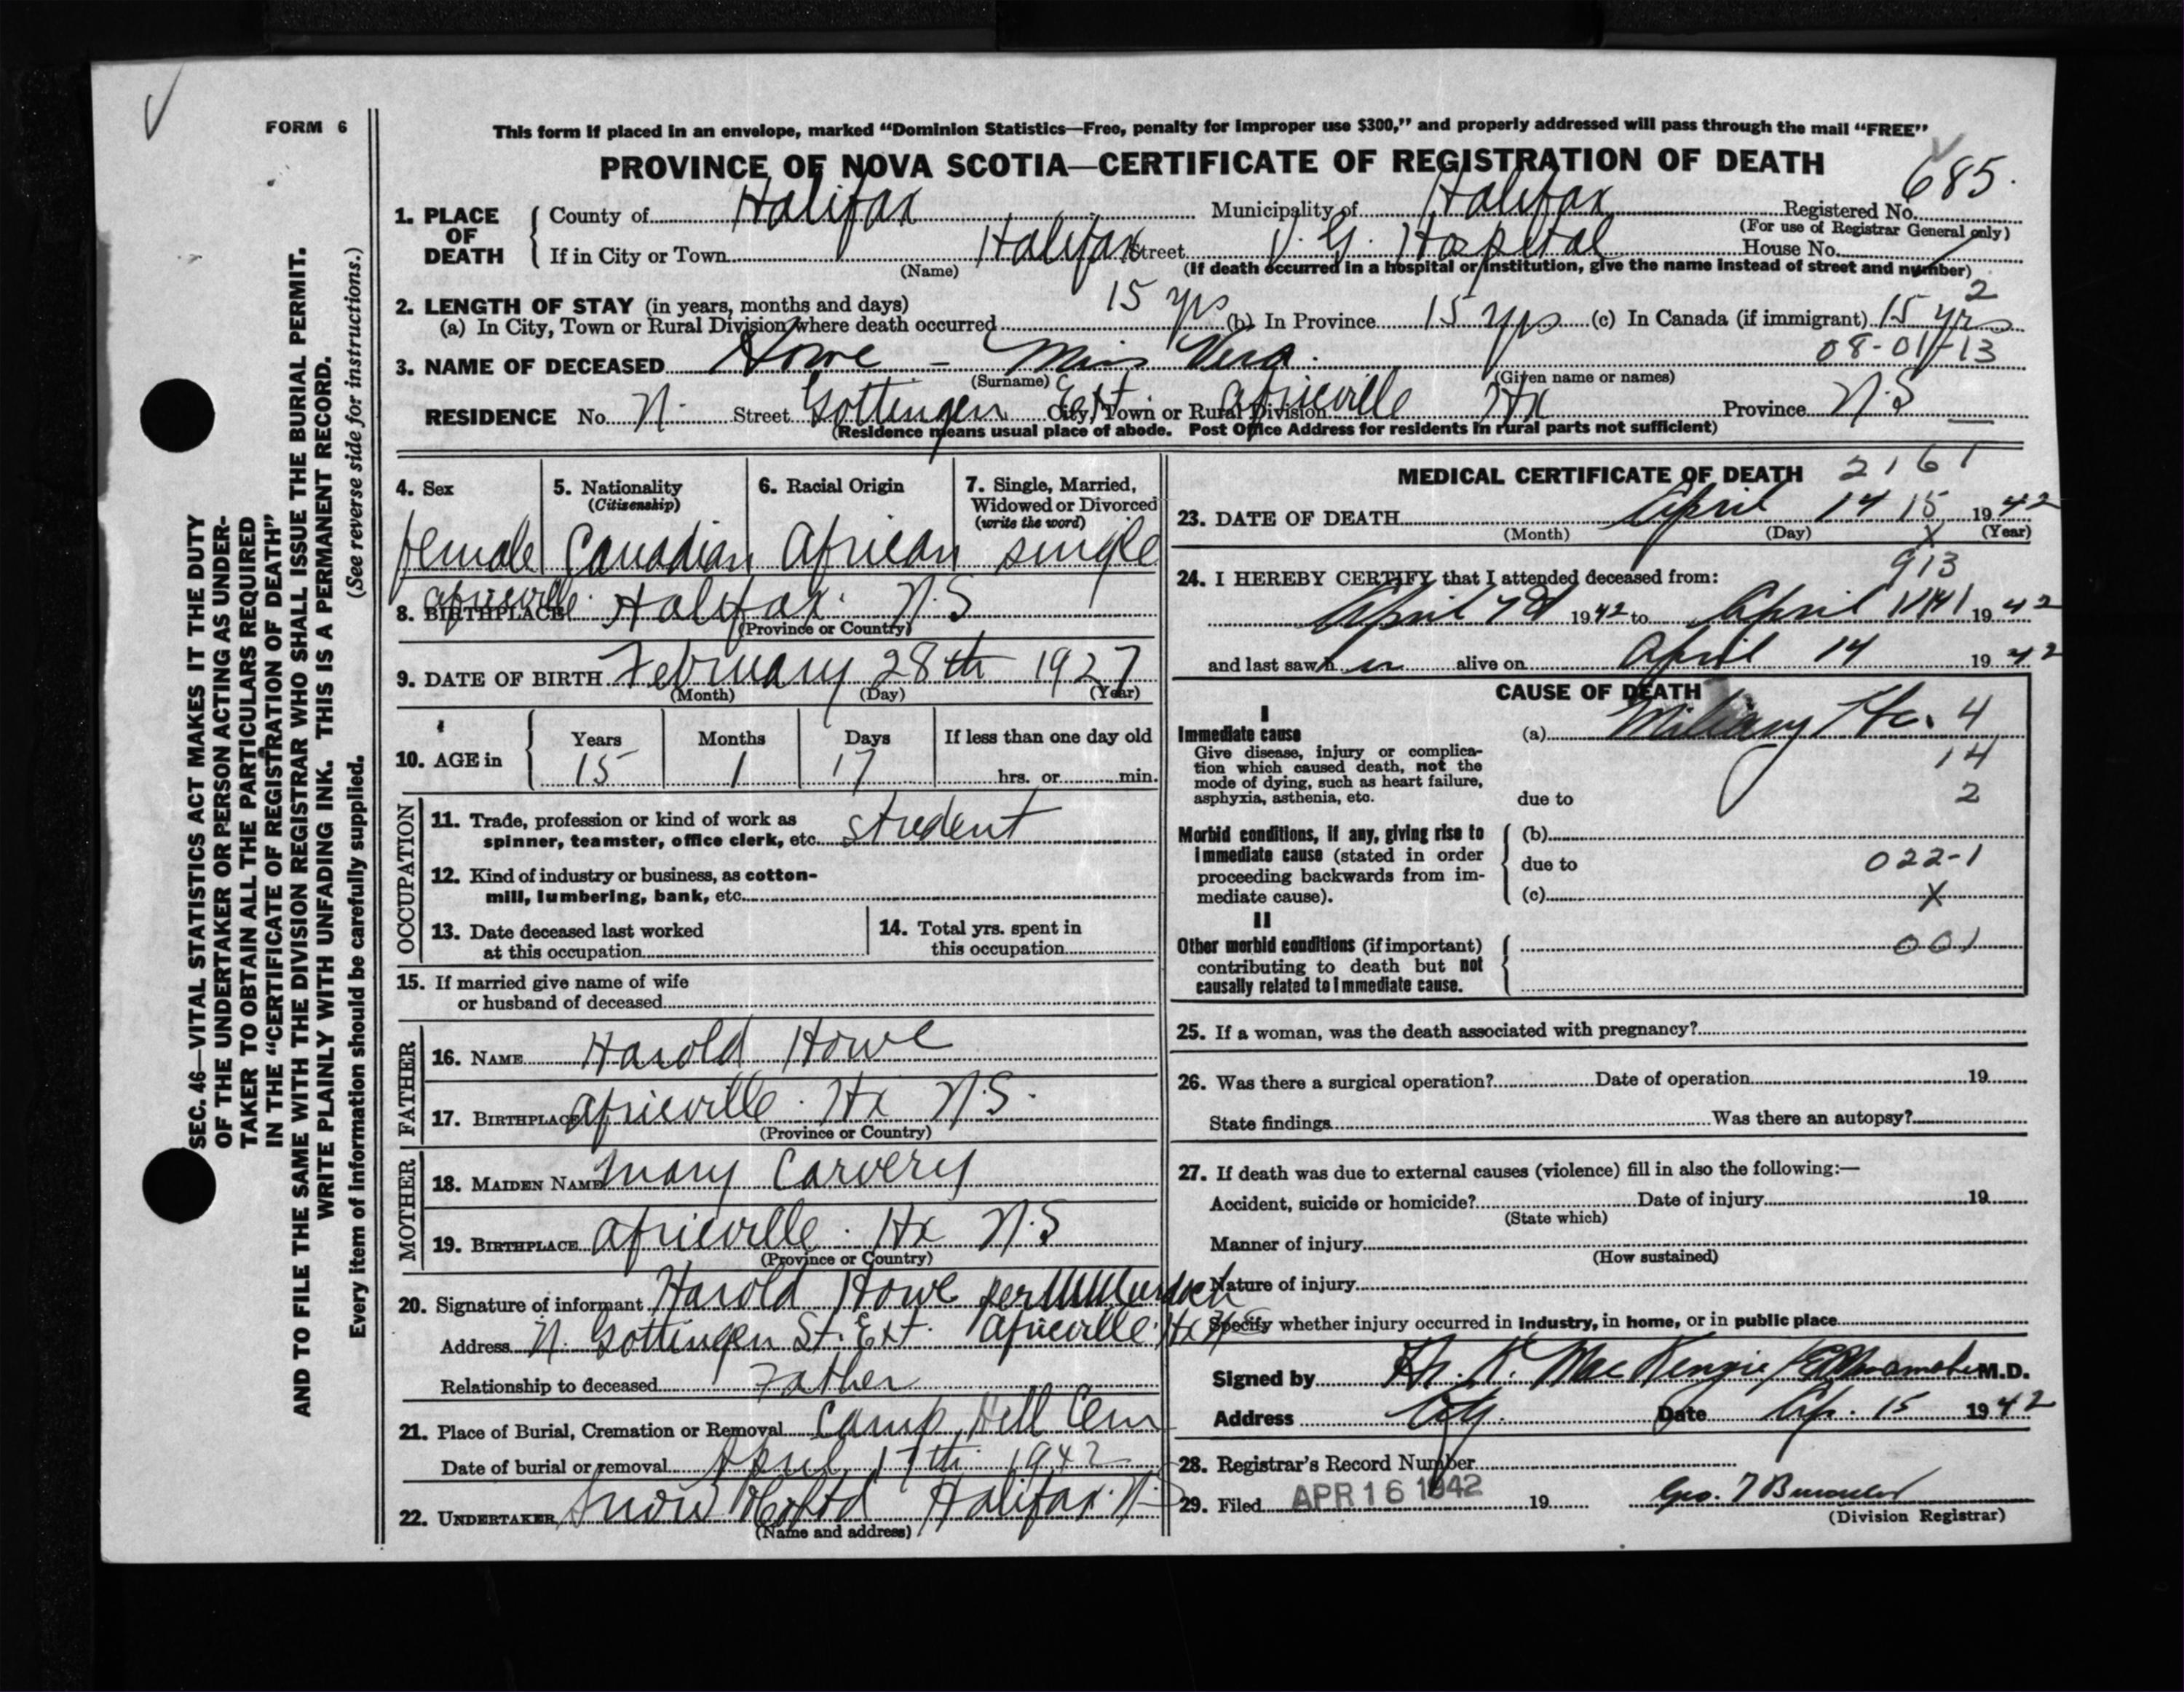 FORM 6
This form if placed in an envelope, marked “Dominion Statistics—Free, penalty for improper use $300,” and properly addressed will pass through the mail “FREE”
PROVINCE OF NOVA SCOTIA—CERTIFICATE OF REGISTRATION OF DEATH
685.
1. PLACE OF DEATH County of Halifax Municipality of Halifax Registered No.
(For use of Registrar General only)
If in City or Town Halifax Street V. G. Hospital House No.
(Name) (If death occurred in a hospital or institution, give the name instead of street and number)
2. LENGTH OF STAY (in years, months and days) 2
(a) In City, Town or Rural Division where death occurred 15 yrs (b) In Province 15 yrs (c) In Canada (if immigrant) 15 yrs
08-01-13
3. NAME OF DECEASED Howe - Miss Vera.
(Surname) (Given name or names)
RESIDENCE No. N. Street Gottingen Ext City, Town or Rural Division Africville Hx Province N.S
(Residence means usual place of abode. Post Office Address for residents in rural parts not sufficient)
4. Sex
female
5. Nationality
(Citizenship)
Canadian
6. Racial Origin
African
7. Single, Married,
Widowed or Divorced
(write the word)
single
8. BIRTHPLACE Africville. Halifax. N.S
(Province or Country)
9. DATE OF BIRTH February 28th 1927
(Month) (Day) (Year)
10. AGE in Years Months Days If less than one day old
15 1 17 hrs. or min.
OCCUPATION
11. Trade, profession or kind of work as
spinner, teamster, office clerk, etc. student
12. Kind of industry or business, as cotton-
mill, lumbering, bank, etc.
13. Date deceased last worked
at this occupation
14. Total yrs. spent in
this occupation
15. If married give name of wife
or husband of deceased
FATHER
16. NAME Harold Howe
17. BIRTHPLACE Africville. Hx N.S.
(Province or Country)
MOTHER
18. MAIDEN NAME Mary Carvery
19. BIRTHPLACE Africville. Hx N.S
(Province or Country)
20. Signature of informant Harold Howe per Murdoch
Address N. Gottingen St. Ext. Africville. Hx N.S
Relationship to deceased Father
21. Place of Burial, Cremation or Removal Camp Hill Cem
Date of burial or removal April 17th 1942
22. UNDERTAKER Snow & Co Ltd Halifax. N.S
(Name and address)
MEDICAL CERTIFICATE OF DEATH 2161
23. DATE OF DEATH April 14 15 1942
(Month) (Day) (Year)
X
913
24. I HEREBY CERTIFY that I attended deceased from:
April 7 1942 to April 1942
and last saw h er alive on April 14 1942
CAUSE OF DEATH
I
Immediate cause
Give disease, injury or complica-
tion which caused death, not the
mode of dying, such as heart failure,
asphyxia, asthenia, etc.
(a) Miliary Tbc. 4
14
due to 2
Morbid conditions, if any, giving rise to
immediate cause (stated in order
proceeding backwards from im-
mediate cause).
(b)
due to 022-1
(c) X
II
Other morbid conditions (if important)
contributing to death but not
causally related to immediate cause.
001
25. If a woman, was the death associated with pregnancy?
26. Was there a surgical operation? Date of operation 19
State findings Was there an autopsy?
27. If death was due to external causes (violence) fill in also the following:—
Accident, suicide or homicide? Date of injury 19
(State which)
Manner of injury
(How sustained)
Nature of injury
Specify whether injury occurred in industry, in home, or in public place
Signed by K. MacKenzie M.D.
Address City. Date Ap. 15 1942
28. Registrar's Record Number
29. Filed APR 16 1942 19 Geo. T
(Division Registrar)
SEC. 46—VITAL STATISTICS ACT MAKES IT THE DUTY
OF THE UNDERTAKER OR PERSON ACTING AS UNDER-
TAKER TO OBTAIN ALL THE PARTICULARS REQUIRED
IN THE “CERTIFICATE OF REGISTRATION OF DEATH”
AND TO FILE THE SAME WITH THE DIVISION REGISTRAR WHO SHALL ISSUE THE BURIAL PERMIT.
WRITE PLAINLY WITH UNFADING INK. THIS IS A PERMANENT RECORD.
Every item of information should be carefully supplied. (See reverse side for instructions.)